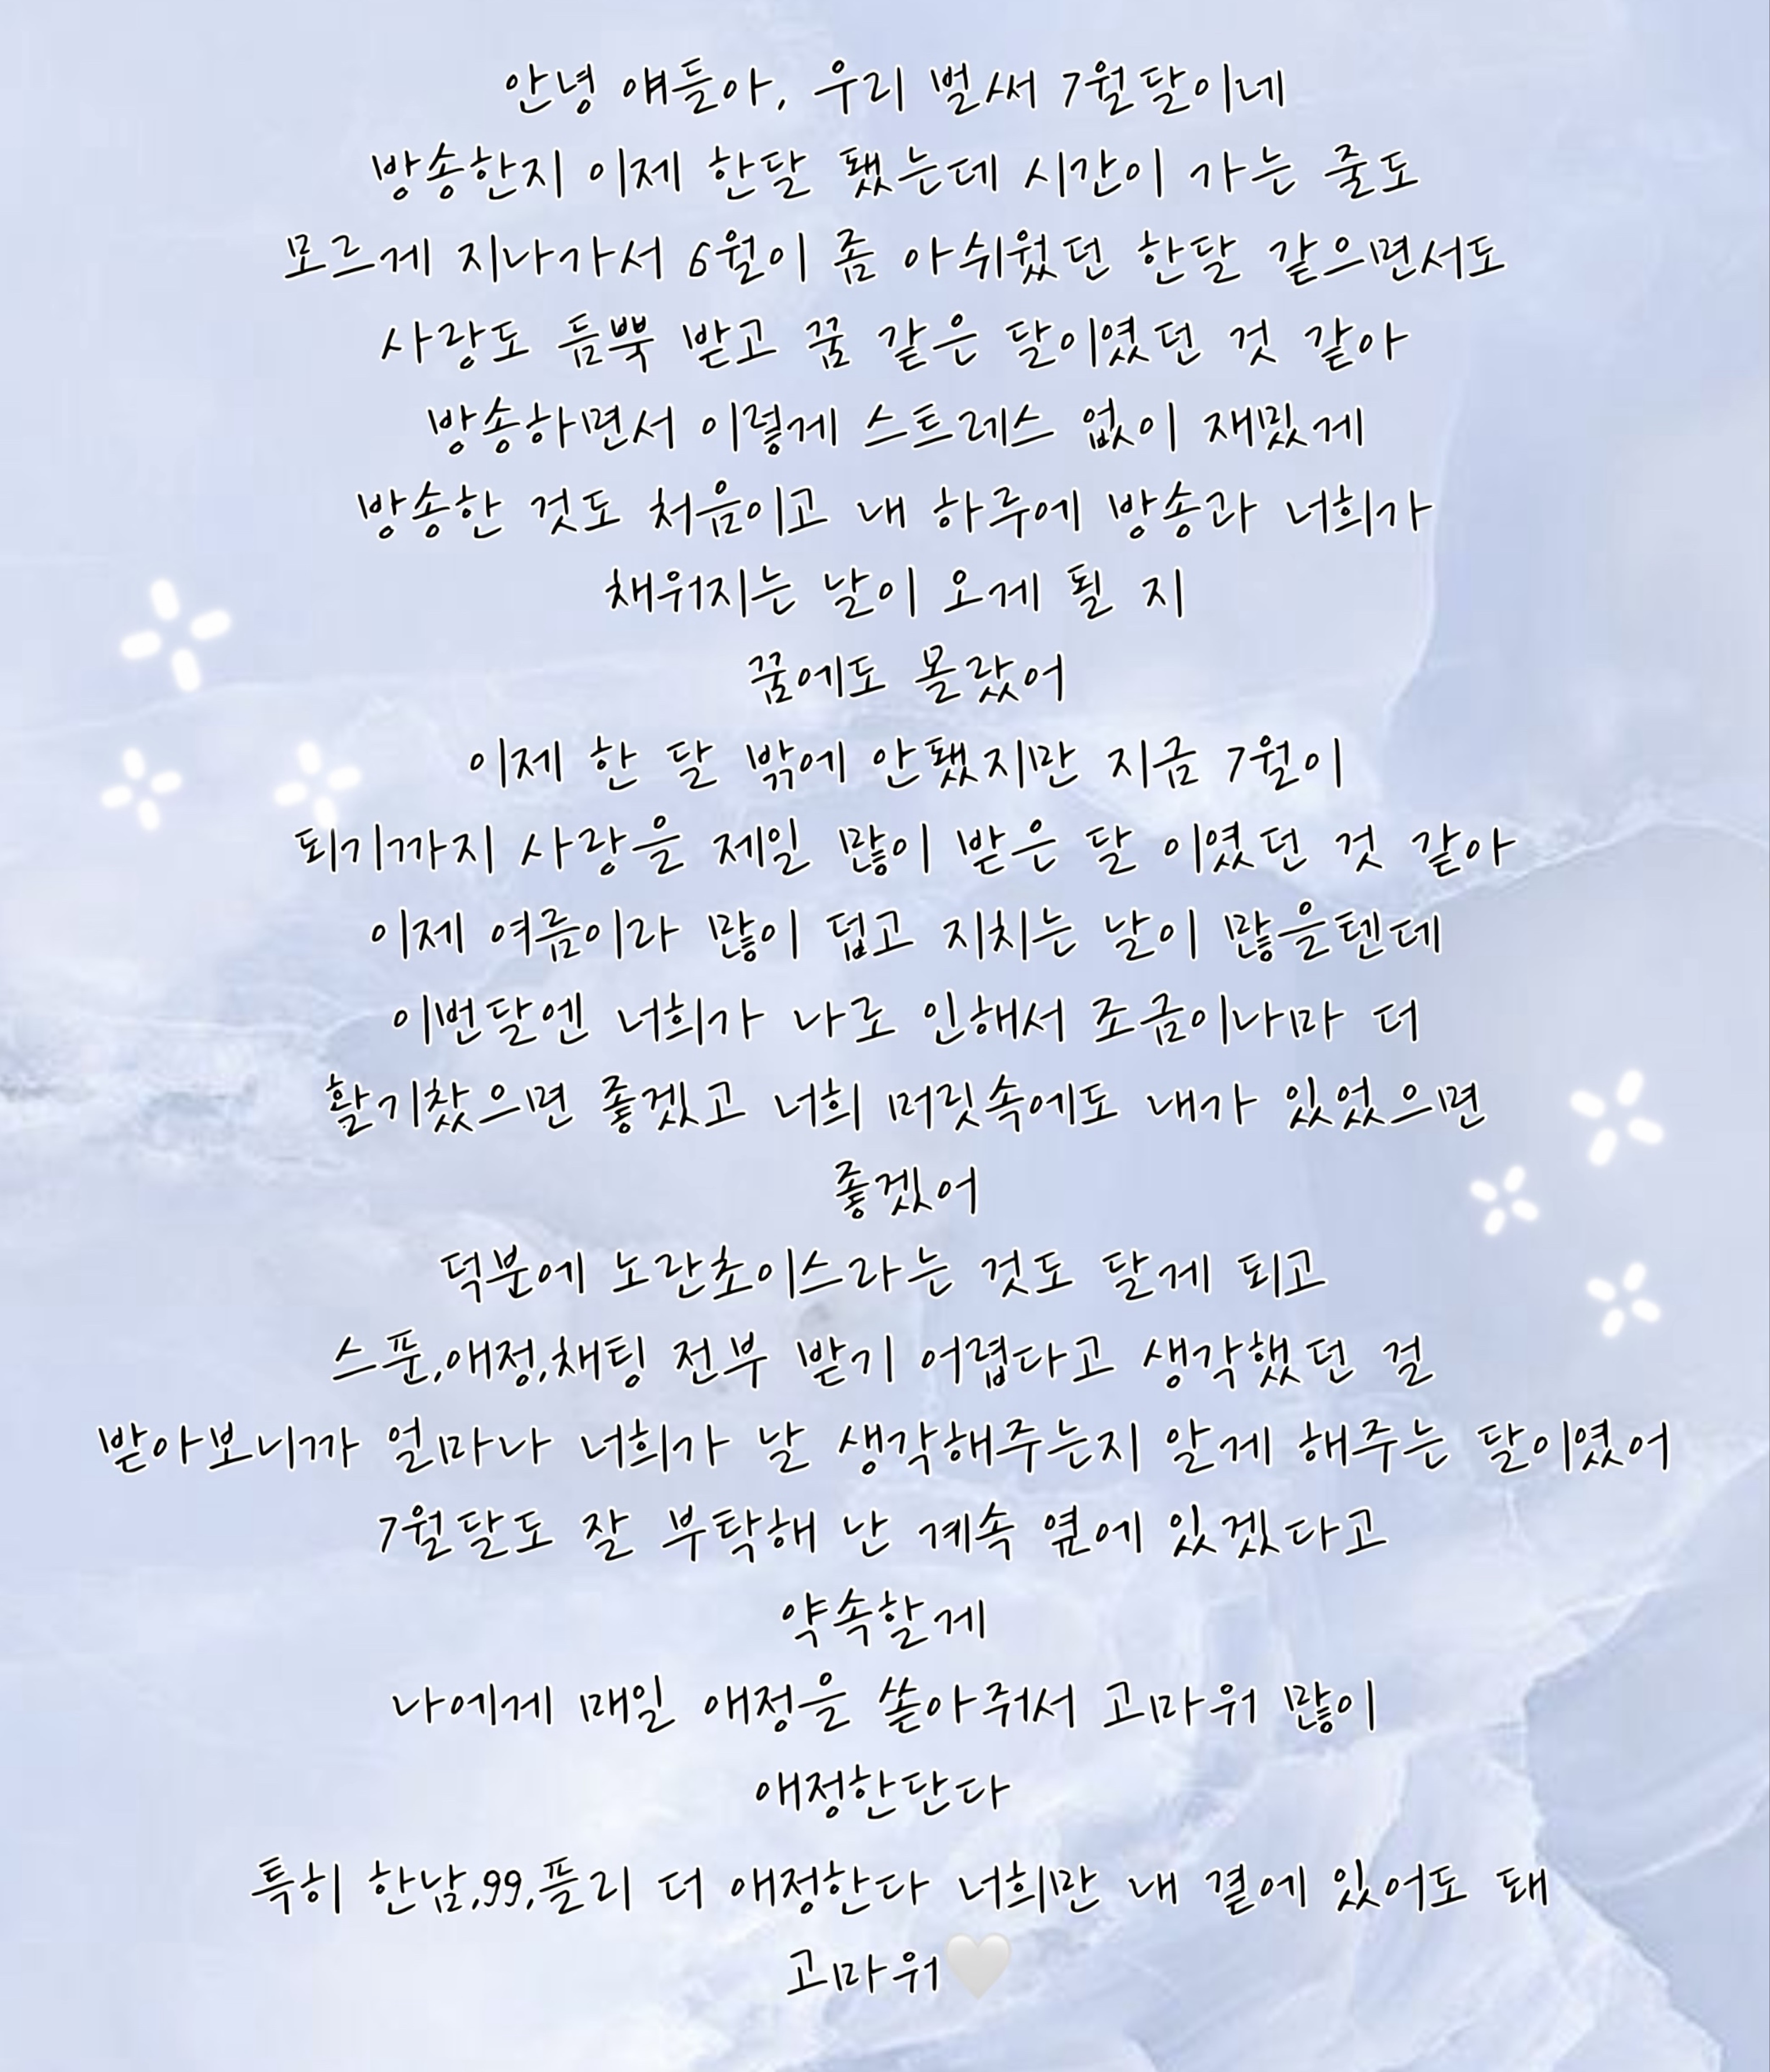 안녕 얘들아, 우리 벌써 7월달이네
방송한지 이제 한달 됐는데 시간이 가는 줄도
모르게 지나가서 6월이 좀 아쉬웠던 한달 같으면서도
사랑도 듬뿍 받고 꿈 같은 달이였던 것 같아
방송하면서 이렇게 스트레스 없이 재밌게
방송한 것도 처음이고 내 하루에 방송과 너희가
채워지는 날이 오게 될 지
꿈에도 몰랐어
이제 한 달 밖에 안됐지만 지금 7월이
되기까지 사랑을 제일 많이 받은 달 이였던 것 같아
이제 여름이라 많이 덥고 지치는 날이 많을텐데
이번달엔 너희가 나로 인해서 조금이나마 더
활기찼으면 좋겠고 너희 머릿속에도 내가 있었으면
좋겠어
덕분에 노란초이스라는 것도 달게 되고
스푼,애정,채팅 전부 받기 어렵다고 생각했던 걸
받아보니까 얼마나 너희가 날 생각해주는지 알게 해주는 달이였어
7월달도 잘 부탁해 난 계속 옆에 있겠다고
약속할게
나에게 매일 애정을 쏟아줘서 고마워 많이
애정한단다
특히 한남,99,플리 더 애정한다 너희만 내 곁에 있어도 돼
고마워🤍